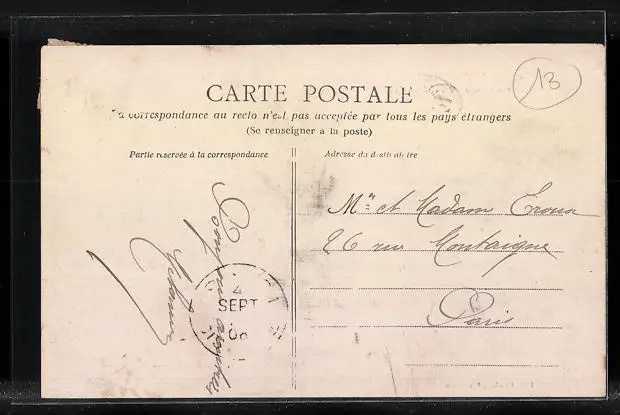 13
CARTE POSTALE
La correspondance au recto n'est pas acceptée par tous les pays étrangers
(Se renseigner à la poste)
Partie réservée à la correspondance
Adresse du destinataire
Mr et Madam
26 rue Montaigne
Paris
4
SEPT
08